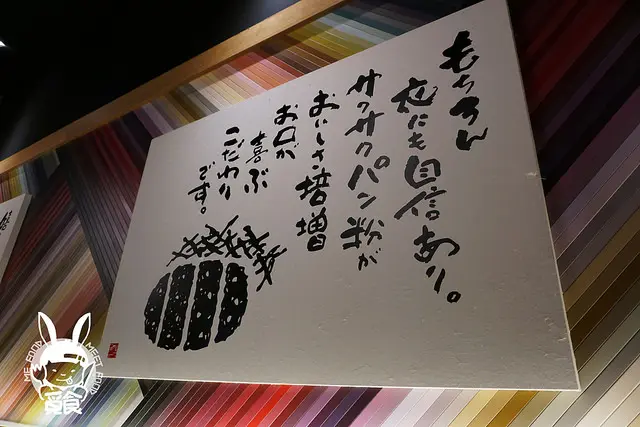 もちろん
衣にも自信あり。
サクサクパン粉が
おいしさ培増
お口が
喜ぶ
こだわり
です。
ME FOOD MEET FOOD
覓食